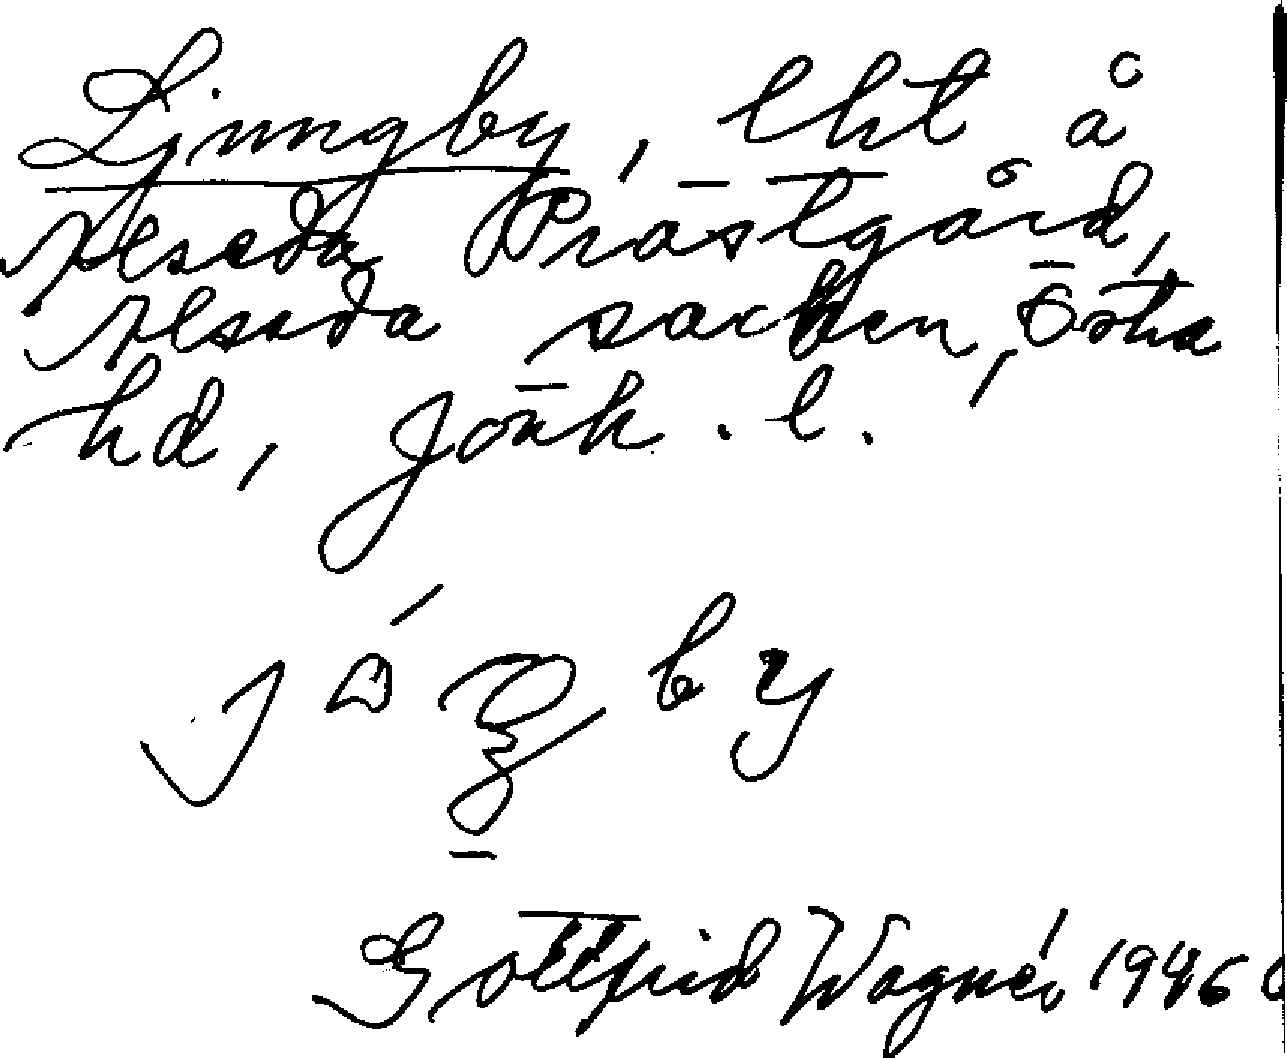 Ljungby, lht å
Alseda Prästgård,
Alseda socken, Östra
hd, Jönk. l.
by
Gottfrid Wagnér 1946